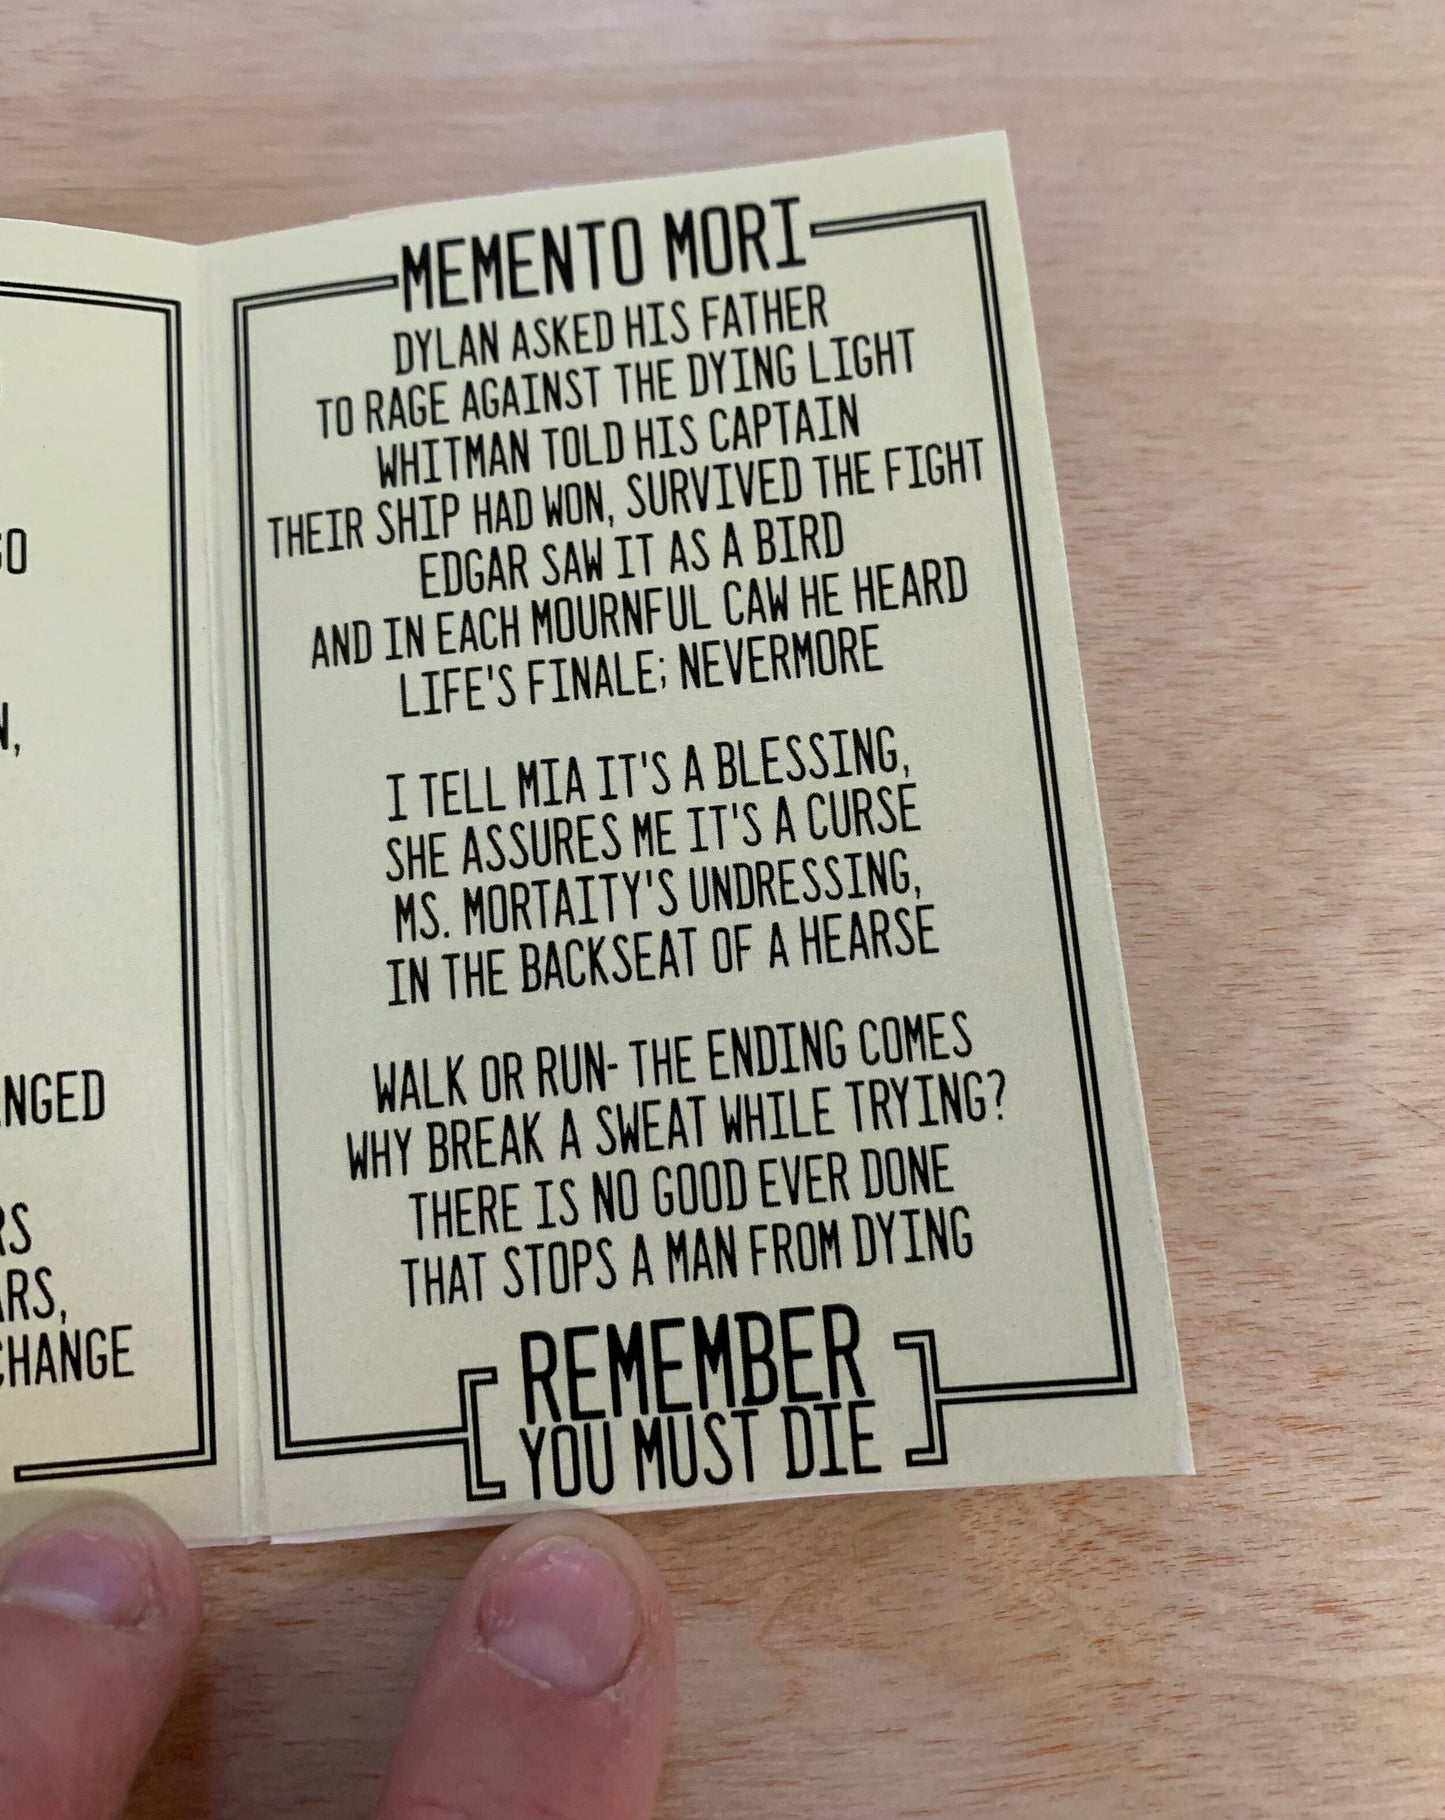 GO
N,
NGED
RS
ARS,
CHANGE
MEMENTO MORI
DYLAN ASKED HIS FATHER
TO RAGE AGAINST THE DYING LIGHT
WHITMAN TOLD HIS CAPTAIN
THEIR SHIP HAD WON, SURVIVED THE FIGHT
EDGAR SAW IT AS A BIRD
AND IN EACH MOURNFUL CAW HE HEARD
LIFE'S FINALE; NEVERMORE
I TELL MIA IT'S A BLESSING,
SHE ASSURES ME IT'S A CURSE
MS. MORTAITY'S UNDRESSING,
IN THE BACKSEAT OF A HEARSE
WALK OR RUN- THE ENDING COMES
WHY BREAK A SWEAT WHILE TRYING?
THERE IS NO GOOD EVER DONE
THAT STOPS A MAN FROM DYING
REMEMBER
YOU MUST DIE